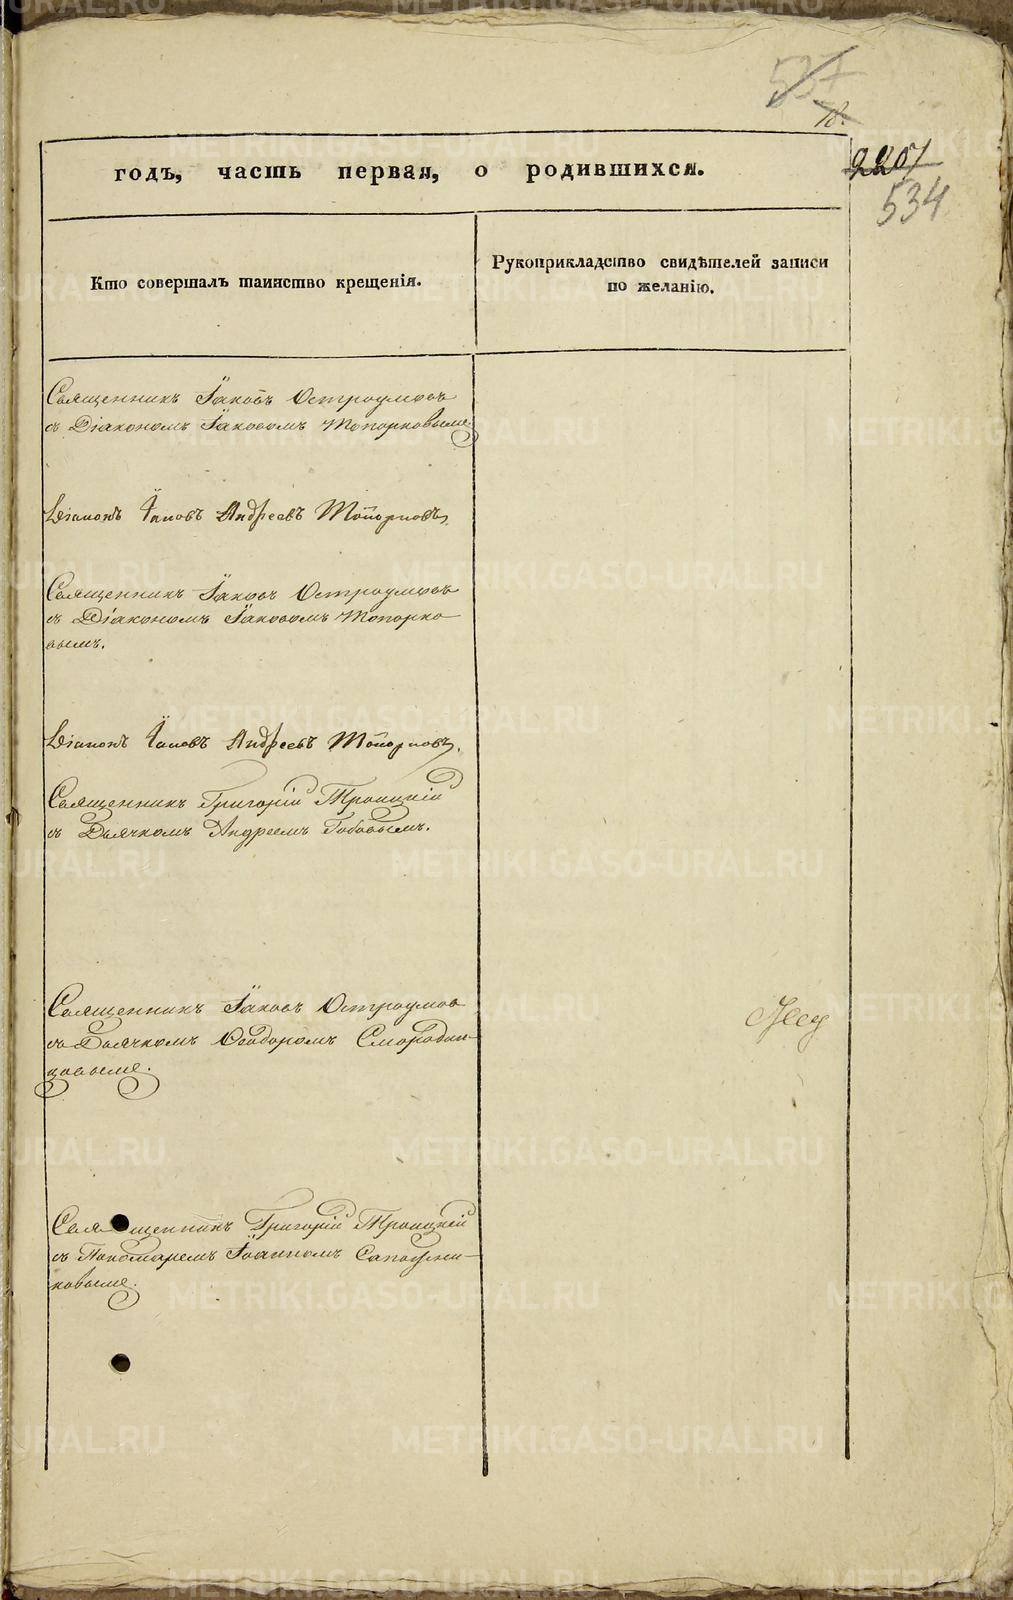 537
78.
2201
534
годъ, часть первая, о родившихся.
Кто совершалъ таинство крещенія.
Рукоприкладство свидѣтелей записи
по желанію.
Священникъ Іаковъ Остроумовъ
съ Діакономъ Іаковомъ Топорковымъ
Діаконъ Іаковъ Андреевъ Топорковъ.
Священникъ Іаковъ Остроумовъ
съ Діакономъ Іаковомъ Топорко-
вымъ.
Діаконъ Іаковъ Андреевъ Топорковъ.
Священникъ Григорій Троицкій
съ Дьячкомъ Андреемъ Бобовымъ.
Священникъ Іаковъ Остроумов
съ Дьячкомъ Ѳеодоромъ Смородин-
цовымъ.
Священникъ Григорій Троицкій
съ Пономаремъ Іоанномъ Сапожни-
ковымъ.
METRIKI.GASO-URAL.RU